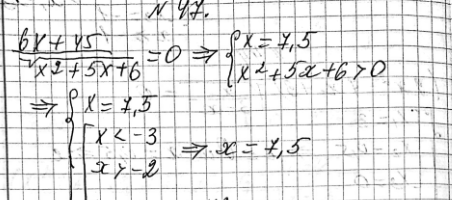 № 47.
(6x + 45)/√(x² + 5x + 6) = 0 ⇒ { x = 7,5
{ x² + 5x + 6 > 0
⇒ { x = 7,5
[ x < -3
[ x > -2 ⇒ x = 7,5